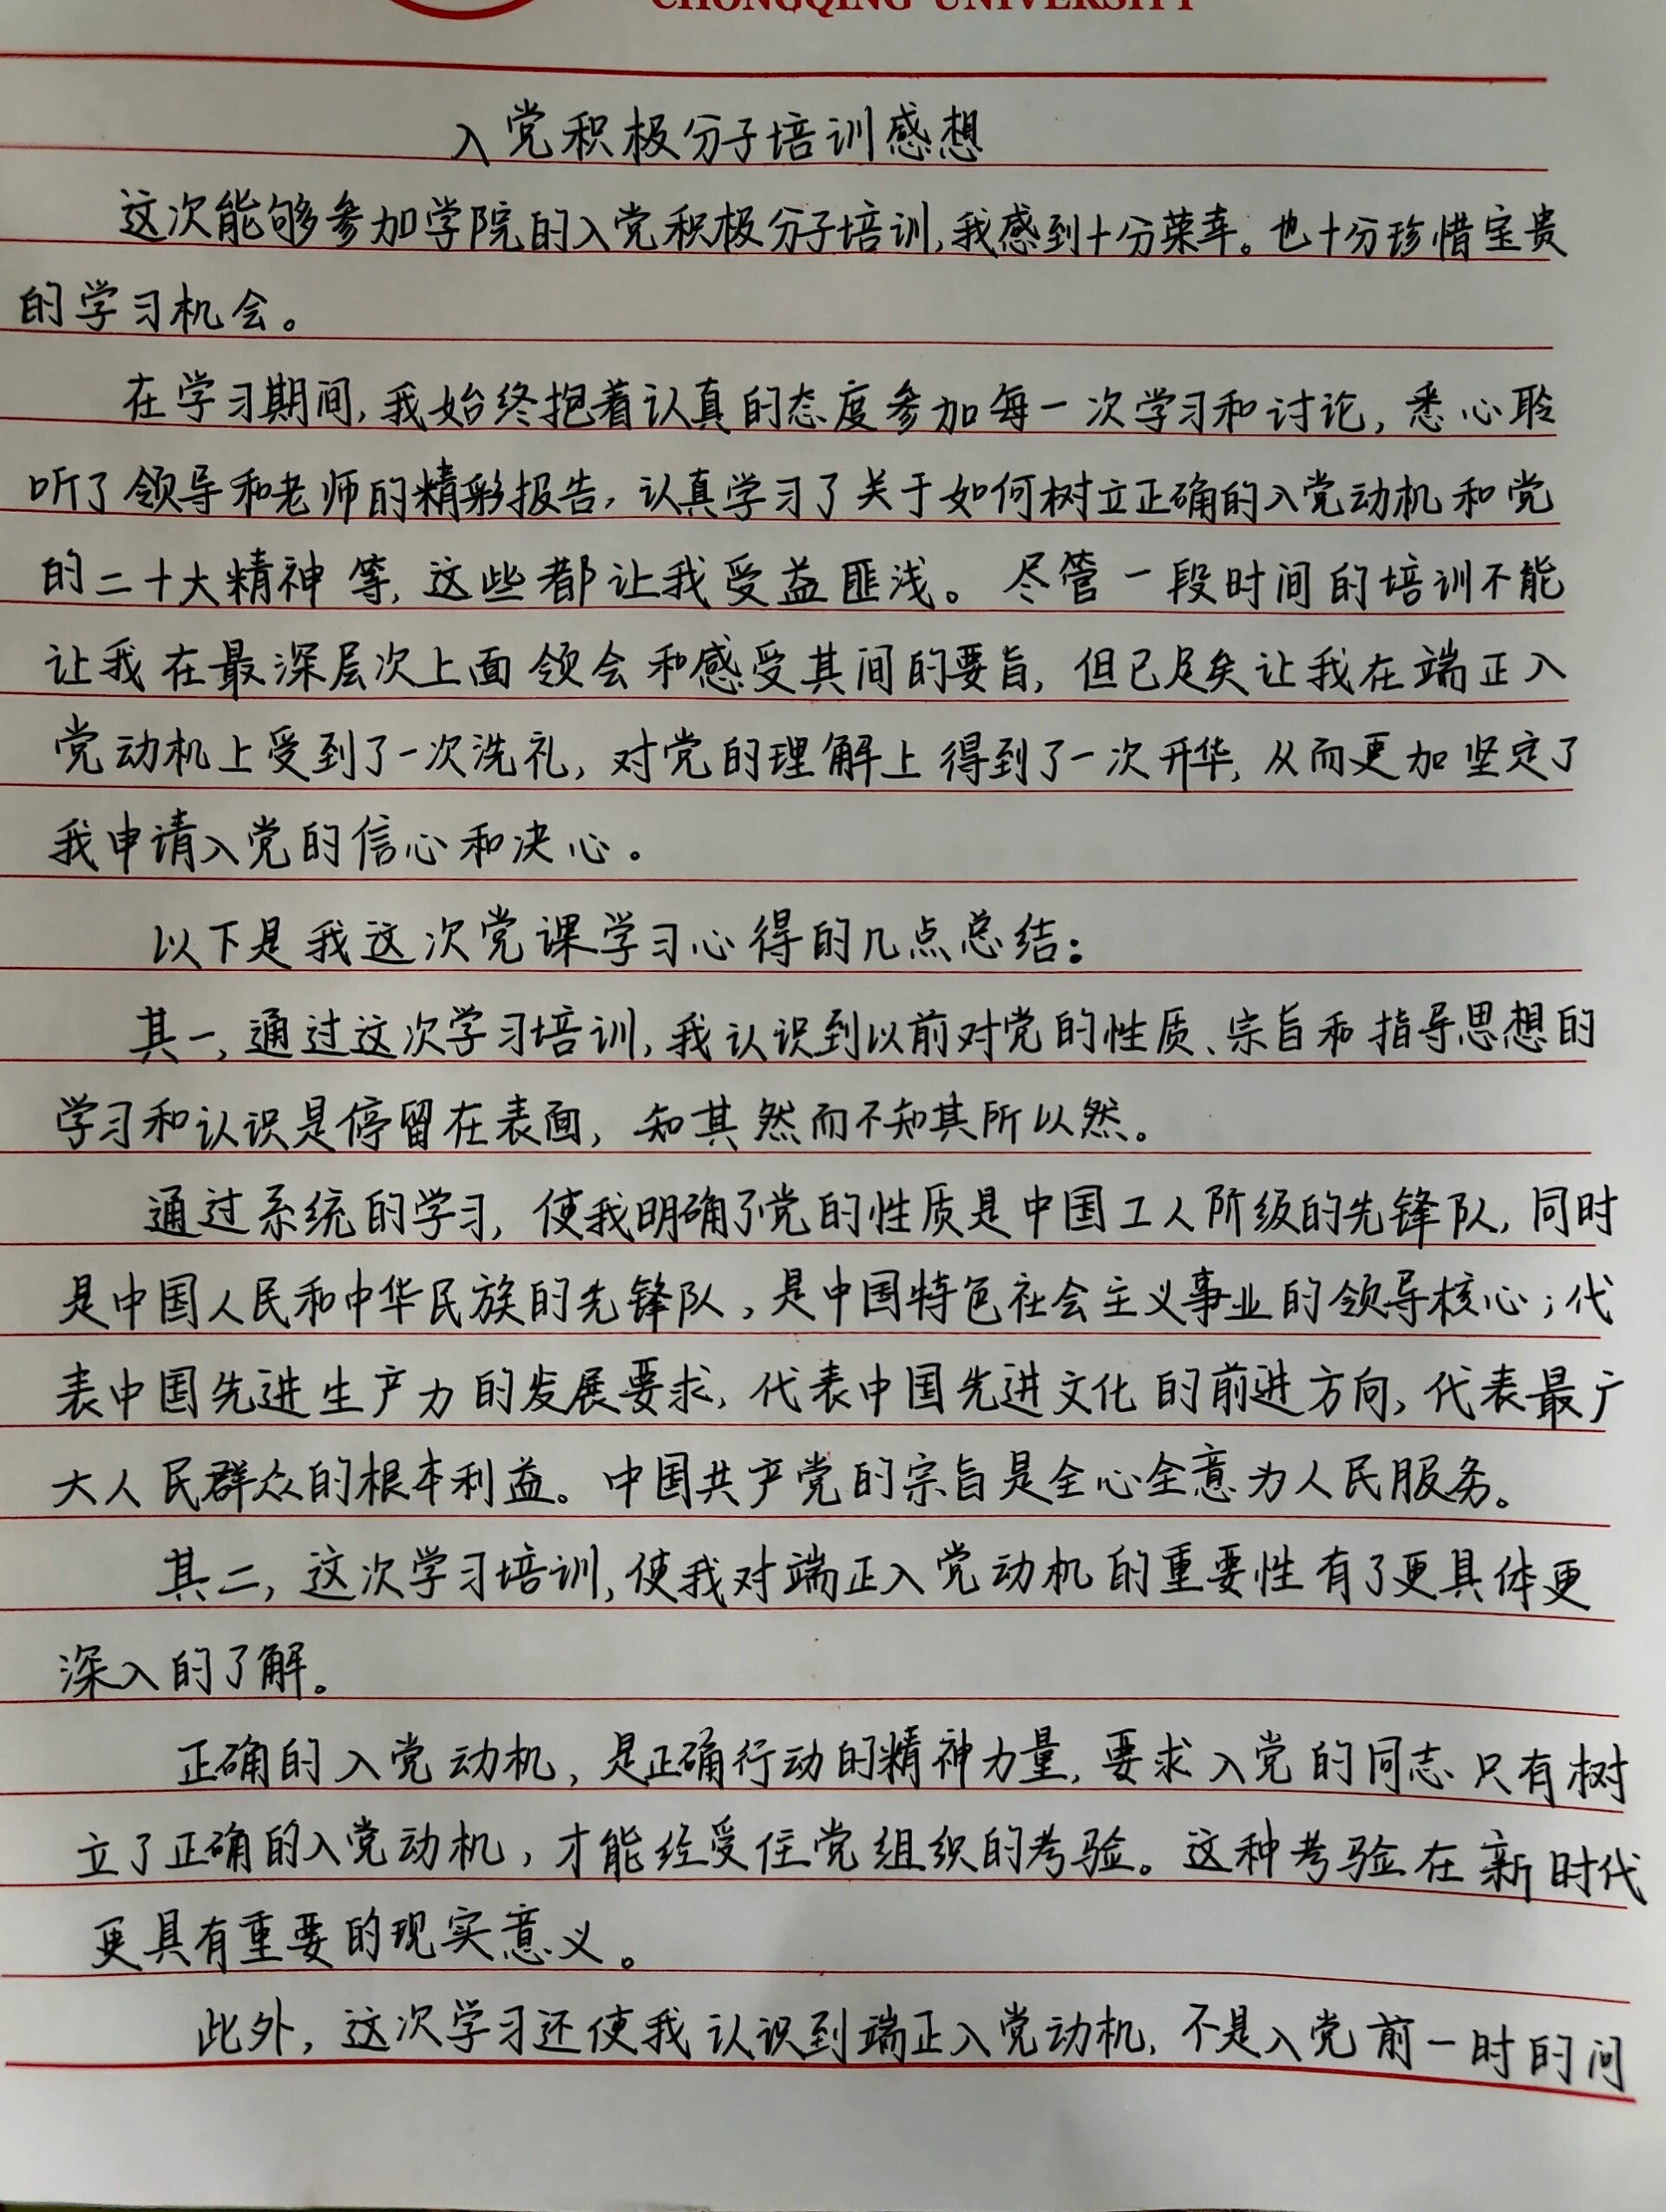 CHONGQING UNIVERSITY
入党积极分子培训感想
这次能够参加学院的入党积极分子培训,我感到十分荣幸。也十分珍惜宝贵
的学习机会。
在学习期间,我始终抱着认真的态度参加每一次学习和讨论,悉心聆
听了领导和老师的精彩报告,认真学习了关于如何树立正确的入党动机和党
的二十大精神等,这些都让我受益匪浅。尽管一段时间的培训不能
让我在最深层次上面领会和感受其间的要旨,但已足矣让我在端正入
党动机上受到了一次洗礼,对党的理解上得到了一次升华,从而更加坚定了
我申请入党的信心和决心。
以下是我这次党课学习心得的几点总结:
其一,通过这次学习培训,我认识到以前对党的性质、宗旨和指导思想的
学习和认识是停留在表面,知其然而不知其所以然。
通过系统的学习,使我明确了党的性质是中国工人阶级的先锋队,同时
是中国人民和中华民族的先锋队,是中国特色社会主义事业的领导核心;代
表中国先进生产力的发展要求,代表中国先进文化的前进方向,代表最广
大人民群众的根本利益。中国共产党的宗旨是全心全意为人民服务。
其二,这次学习培训,使我对端正入党动机的重要性有了更具体更
深入的了解。
正确的入党动机,是正确行动的精神力量,要求入党的同志只有树
立了正确的入党动机,才能经受住党组织的考验。这种考验在新时代
更具有重要的现实意义。
此外,这次学习还使我认识到端正入党动机,不是入党前一时的问